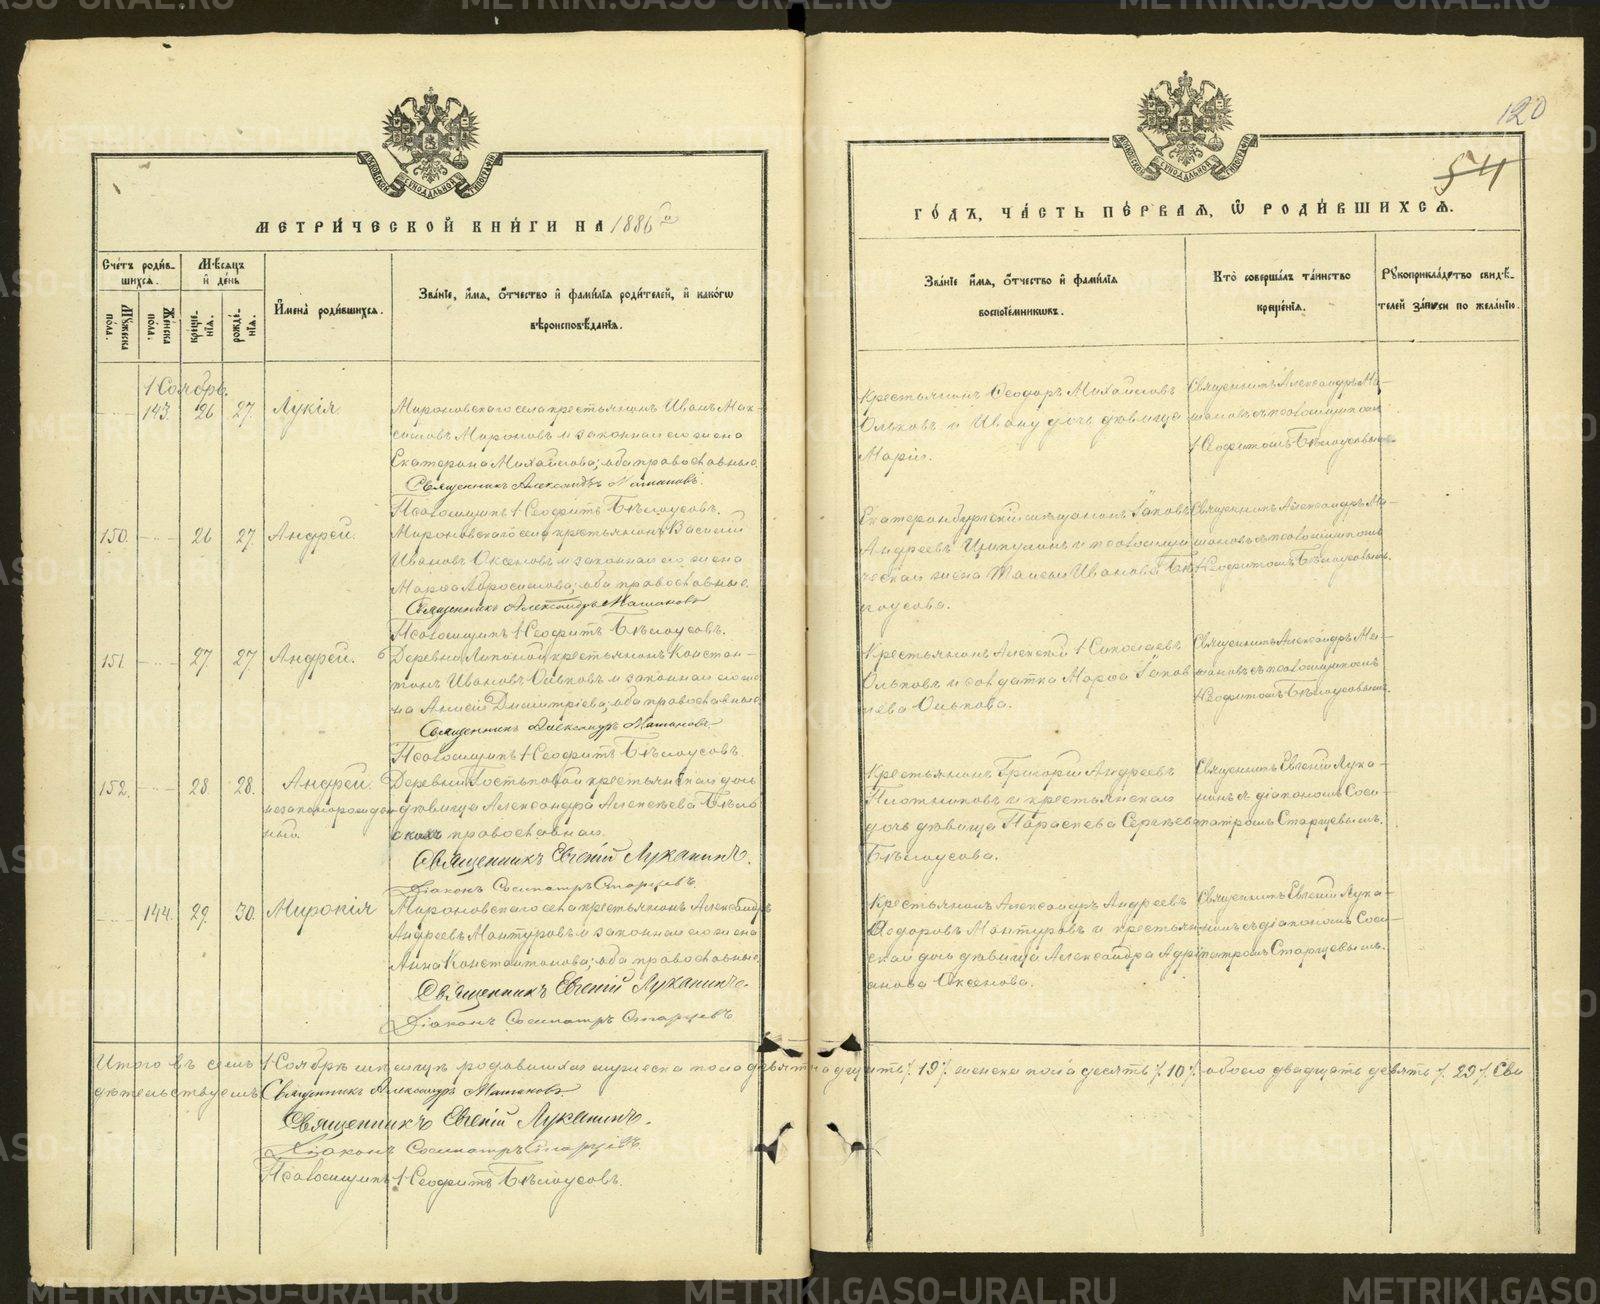 120
54
МЕТРИ́ЧЕСКОЙ КНИ́ГИ НА 1886 го
ГО́ДЪ, ЧА́СТЬ ПЕ́РВАЯ, Ѽ РОДИ́ВШИХСЯ.
Сче́тъ роди́в-
шихся.
Мѣ́сяцъ
и҆ де́нь
Му́жеска пола.
Же́нска пола.
креще́-
нїѧ.
рожде́-
нїѧ.
И҆мена̀ роди́вшихся.
Зва́нїе, и҆́мя, ѻ҆́тчество и҆ фамѝлїя роди́телей, и҆ како́гѡ
вѣроисповѣ́данїя.
Зва́нїе и҆́мя, ѻ҆́тчество и҆ фамѝлїя
воспрїе́мникѡвъ.
Кто̀ соверша́лъ та́инство
креще́нїя.
Рꙋкоприкла́дство свидѣ́-
телей за́писи по жела́нїю.
Ноябрь.
143. 26 27. Лукія.
Мироновскаго села крестьянинъ Иванъ Мак-
симовъ Мироновъ и законная его жена
Екатерина Михайлова; оба православные.
Священникъ Александръ
Псаломщикъ Неофитъ Бѣлоусовъ.
Крестьянинъ Ѳеодоръ Михайловъ
Ольковъ и Ивану дочь дѣвица
Марія.
Священникъ Александръ Ма-
съ псаломщикомъ
Неофитомъ Бѣлоусовымъ.
150. 26 27. Андрей.
Мироновскаго села крестьянинъ Василій
Ивановъ Оксеновъ и законная его жена
Марѳа Абросимова; оба православные.
Священникъ Александръ
Псаломщикъ Неофитъ Бѣлоусовъ.
Екатеринбургскій мѣщанинъ Іаковъ
Андреевъ Ципулинъ и псаломщи-
ческая жена Таисія Иванова Бѣ-
лоусова.
Священникъ Александръ Ма-
съ псаломщикомъ
Неофитомъ Бѣлоусовымъ.
151. 27 27 Андрей.
Деревни Липиной крестьянинъ Констан-
тинъ Ивановъ Ольковъ и законная его же-
на Анисія Димитріева; оба православные.
Священникъ Александръ
Псаломщикъ Неофитъ Бѣлоусовъ.
Крестьянинъ Алексѣй Николаевъ
Ольковъ и солдатка Марѳа Іаков-
лева Олькова.
Священникъ Александръ Ма-
съ псаломщикомъ
Неофитомъ Бѣлоусовымъ.
152. 28 28. Андрей
незаконорожден-
ный.
Деревни крестьянская дочь
дѣвица Александра Алексѣева Бѣло-
православная.
Священникъ Евгеній Луканинъ.
Діаконъ Сосипатръ Старцевъ.
Крестьянинъ Григорій Андреевъ
Плотниковъ и крестьянская
дочь дѣвица Параскева Сергѣева
Бѣлоусова.
Священникъ Евгеній Лука-
нинъ съ діакономъ Соси-
патромъ Старцевымъ.
144. 29. 30. Миропія
Мироновскаго села крестьянинъ Александръ
Андреевъ Мантуровъ и законная его жена
Анна Константинова; оба православные.
Священникъ Евгеній Луканинъ.
Діаконъ Сосипатръ Старцевъ.
Крестьянинъ Александръ Андреевъ
Ѳодоровъ Мантуровъ и крестьян-
ская дочь дѣвица Александра Адрі-
анова Оксенова.
Священникъ Евгеній Лука-
нинъ съ діакономъ Соси-
патромъ Старцевымъ.
Итого въ семъ Ноябрѣ мѣсяцѣ родившихся мужеска пола девятнадцать /19/ женска пола десять /10/ обоего двадцать девять /29/. Сви-
дѣтельствуемъ: Священникъ Александръ
Священникъ Евгеній Луканинъ.
Діаконъ Сосипатръ Старцевъ.
Псаломщикъ Неофитъ Бѣлоусовъ.
METRIKI.GASO-URAL.RU